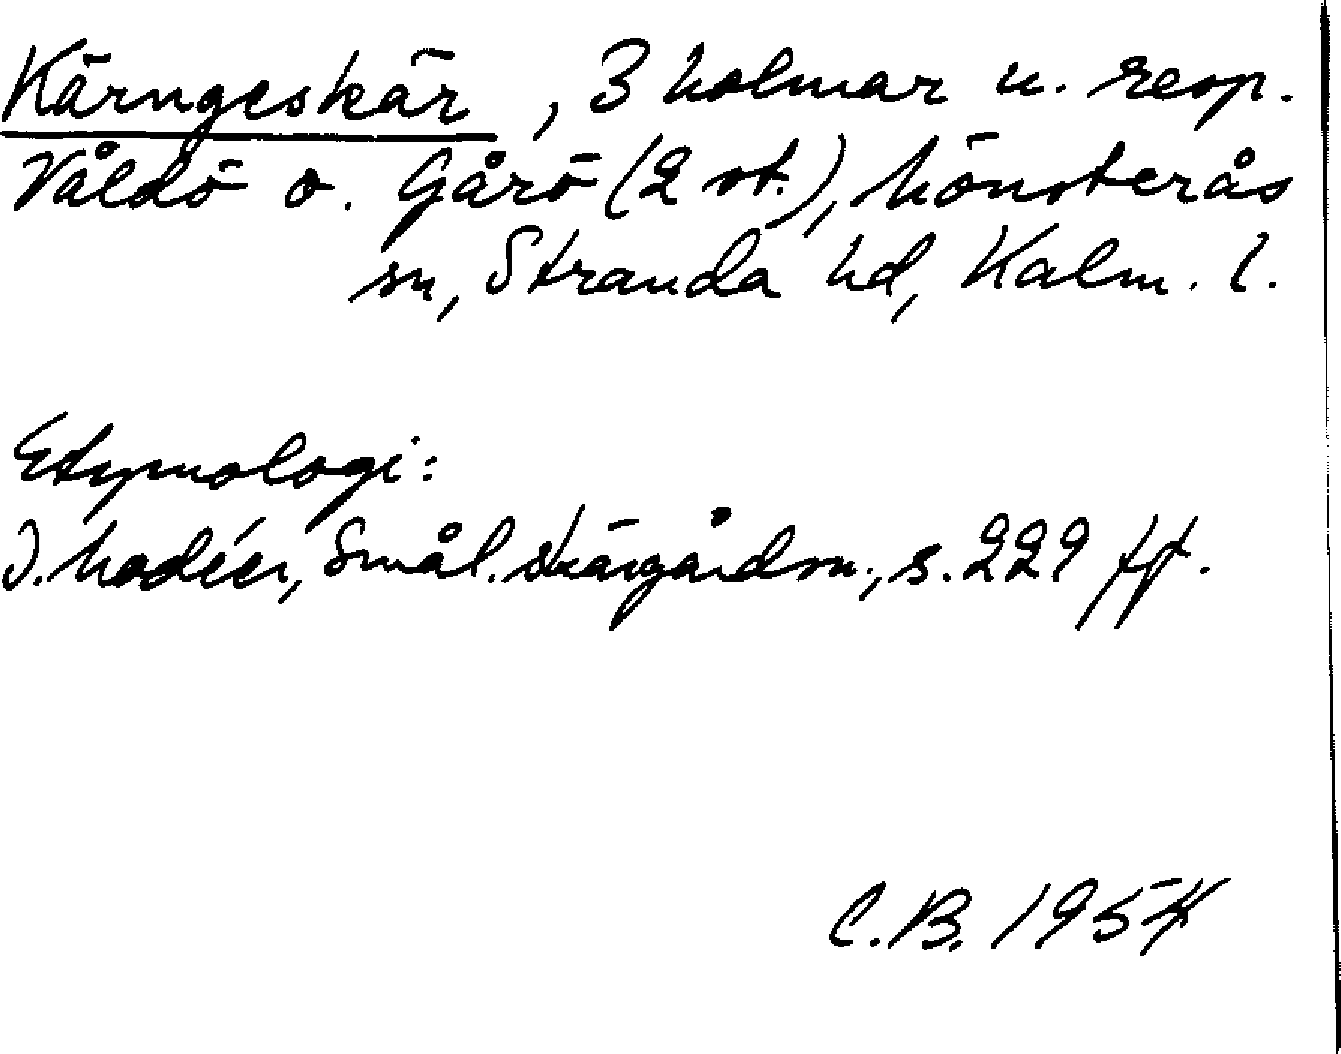 Kärngeskär, 3 holmar u. resp.
Våldö o. Gårö (2 st.), Mönsterås
sn, Stranda hd, Kalm. l.
Etymologi:
I. Modéer, Smål. skärgårdsn., s. 229 ff.
C.B. 1954